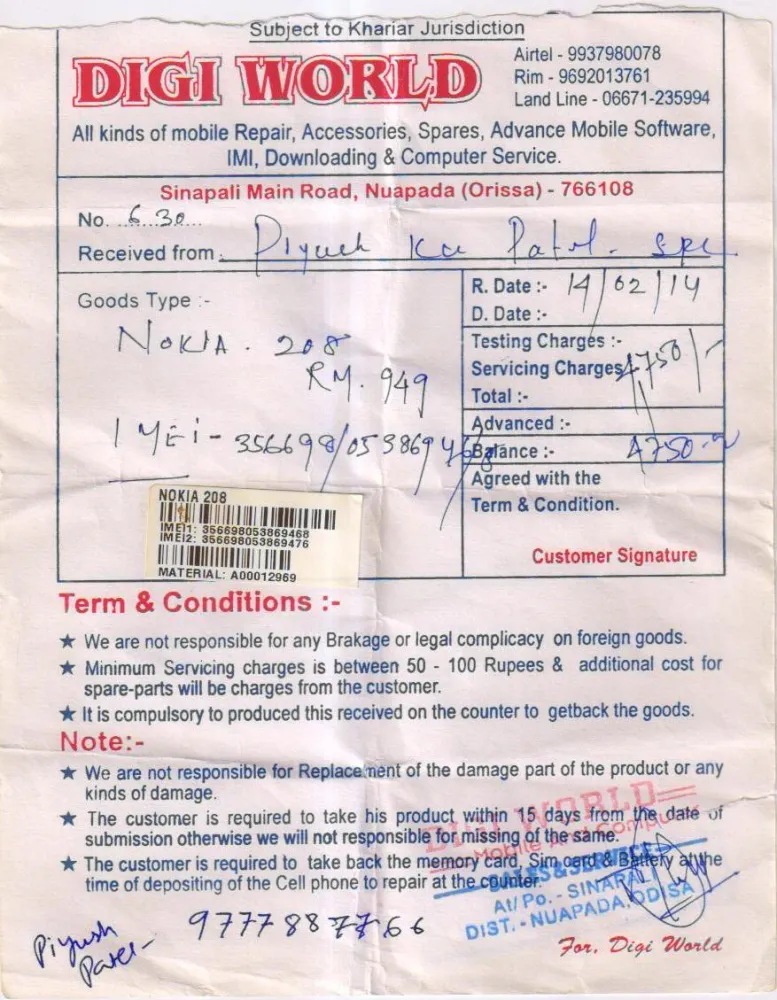 Subject to Khariar Jurisdiction
DIGI WORLD
Airtel - 9937980078
Rim - 9692013761
Land Line - 06671-235994
All kinds of mobile Repair, Accessories, Spares, Advance Mobile Software,
IMI, Downloading & Computer Service.
Sinapali Main Road, Nuapada (Orissa) - 766108
No. 630
Received from Piyush Ku Patel.
Goods Type :-
NOKIA. 208
RM. 949
IMEI - 356698/053869468
R. Date :- 14/02/14
D. Date :-
Testing Charges :-
Servicing Charges 4750/-
Total :-
Advanced :-
Balance :- 4750
Agreed with the
Term & Condition.
Customer Signature
NOKIA 208
IMEI1: 356698053869468
IMEI2: 356698053869476
MATERIAL: A00012969
Term & Conditions :-
★ We are not responsible for any Brakage or legal complicacy on foreign goods.
★ Minimum Servicing charges is between 50 - 100 Rupees & additional cost for
spare-parts will be charges from the customer.
★ It is compulsory to produced this received on the counter to getback the goods.
Note:-
★ We are not responsible for Replacement of the damage part of the product or any
kinds of damage.
★ The customer is required to take his product within 15 days from the date of
submission otherwise we will not responsible for missing of the same.
★ The customer is required to take back the memory card, Sim card & Battery at the
time of depositing of the Cell phone to repair at the counter.
DIGI WORLD
Mobile And Computer
SALES & SERVICE
At/Po. - SINAPALI
DIST. - NUAPADA, ODISA
Piyush
Patel
9777887766
For, Digi World